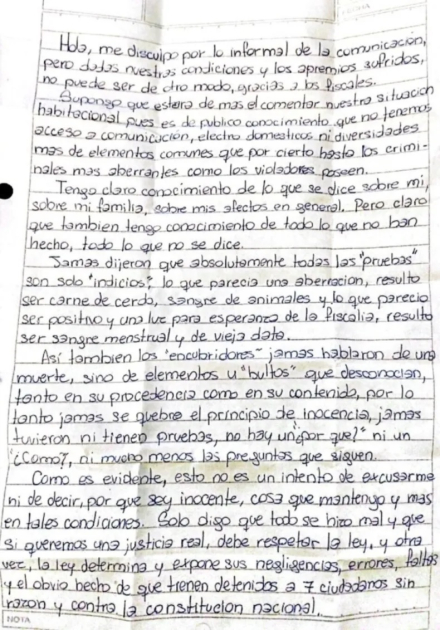 Hola, me disculpo por lo informal de la comunicación,
pero dadas nuestras condiciones y los apremios sufridos,
no puede ser de otro modo, gracias a los fiscales.
Supongo que estara de mas el comentar nuestra situación
habitacional pues es de publico conocimiento que no tenemos
acceso a comunicación, electro domesticos ni diversidades
mas de elementos comunes que por cierto hasta los crimi-
nales mas aberrantes como los violadores poseen.
Tengo claro conocimiento de lo que se dice sobre mi,
sobre mi familia, sobre mis afectos en general. Pero claro
que tambien tengo conocimiento de todo lo que no han
hecho, todo lo que no se dice.
Jamas dijeron que absolutamente todas las "pruebas"
son solo "indicios", lo que parecia una aberracion, resulto
ser carne de cerdo, sangre de animales y lo que parecio
ser positivo y una luz para esperanza de la fiscalia, resulto
ser sangre menstrual y de vieja data.
Así tambien los "encubridores" jamas hablaron de una
muerte, sino de elementos u "bultos" que desconocian,
tanto en su procedencia como en su contenido, por lo
tanto jamas se quebre el principio de inocencia, jamas
tuvieron ni tienen pruebas, no hay un "¿por que?" ni un
"¿Como?", ni mucho menos las preguntas que siguen.
Como es evidente, esto no es un intento de excusarme
ni de decir, por que soy inocente, cosa que mantengo y mas
en tales condiciones. Solo digo que todo se hizo mal y que
si queremos una justicia real, debe respetar la ley, y otra
vez, la ley determina y expone sus negligencias, errores, faltas
y el obvio hecho de que tienen detenidos a 7 ciudadanos sin
razon y contra la constitucion nacional.
NOTA